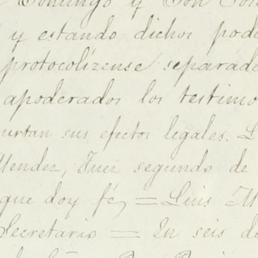 Domingo y Don
y estando dichos pode
protocolízense separada
apoderados los testimo
urtan sus efectos legales.
Mendez, Juez segundo de
que doy fé, = Luis M
Secretario = En seis de